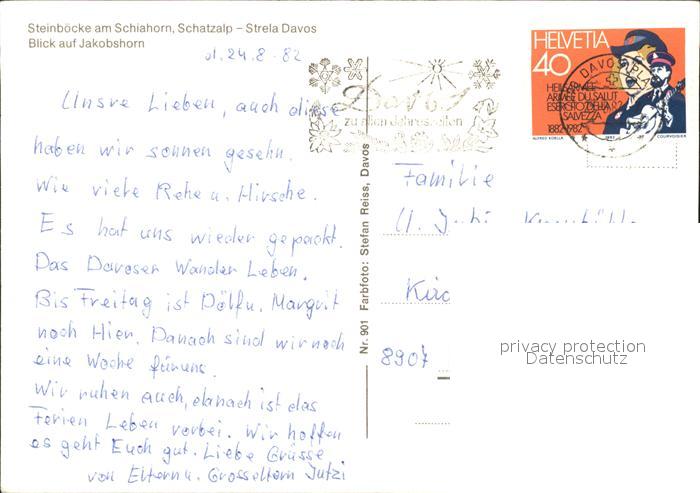 Steinböcke am Schiahorn, Schatzalp – Strela Davos
Blick auf Jakobshorn
d. 24.8.82
Unsre Lieben, auch diese
haben wir sonnen gesehn.
Wie viele Rehe u. Hirsche.
Es hat uns wieder gepackt.
Das Davoser Wander Leben.
Bis Freitag ist Dölf u. Margrit
noch Hier. Danach sind wir noch
eine Woche für uns.
Wir ruhen auch, danach ist das
Ferien Leben vorbei. Wir hoffen
es geht Euch gut. Liebe Grüsse
von Eltern u. Grosseltern Jutzi
Nr. 901 Farbfoto: Stefan Reiss, Davos
Davos
zu allen Jahreszeiten
HELVETIA
40
HEILSARMEE
ARMÉE DU SALUT
ESERCITO DELLA
SALVEZZA
1882-1982
COURVOISIER
DAVOS PL
Familie
8907
privacy protection
Datenschutz